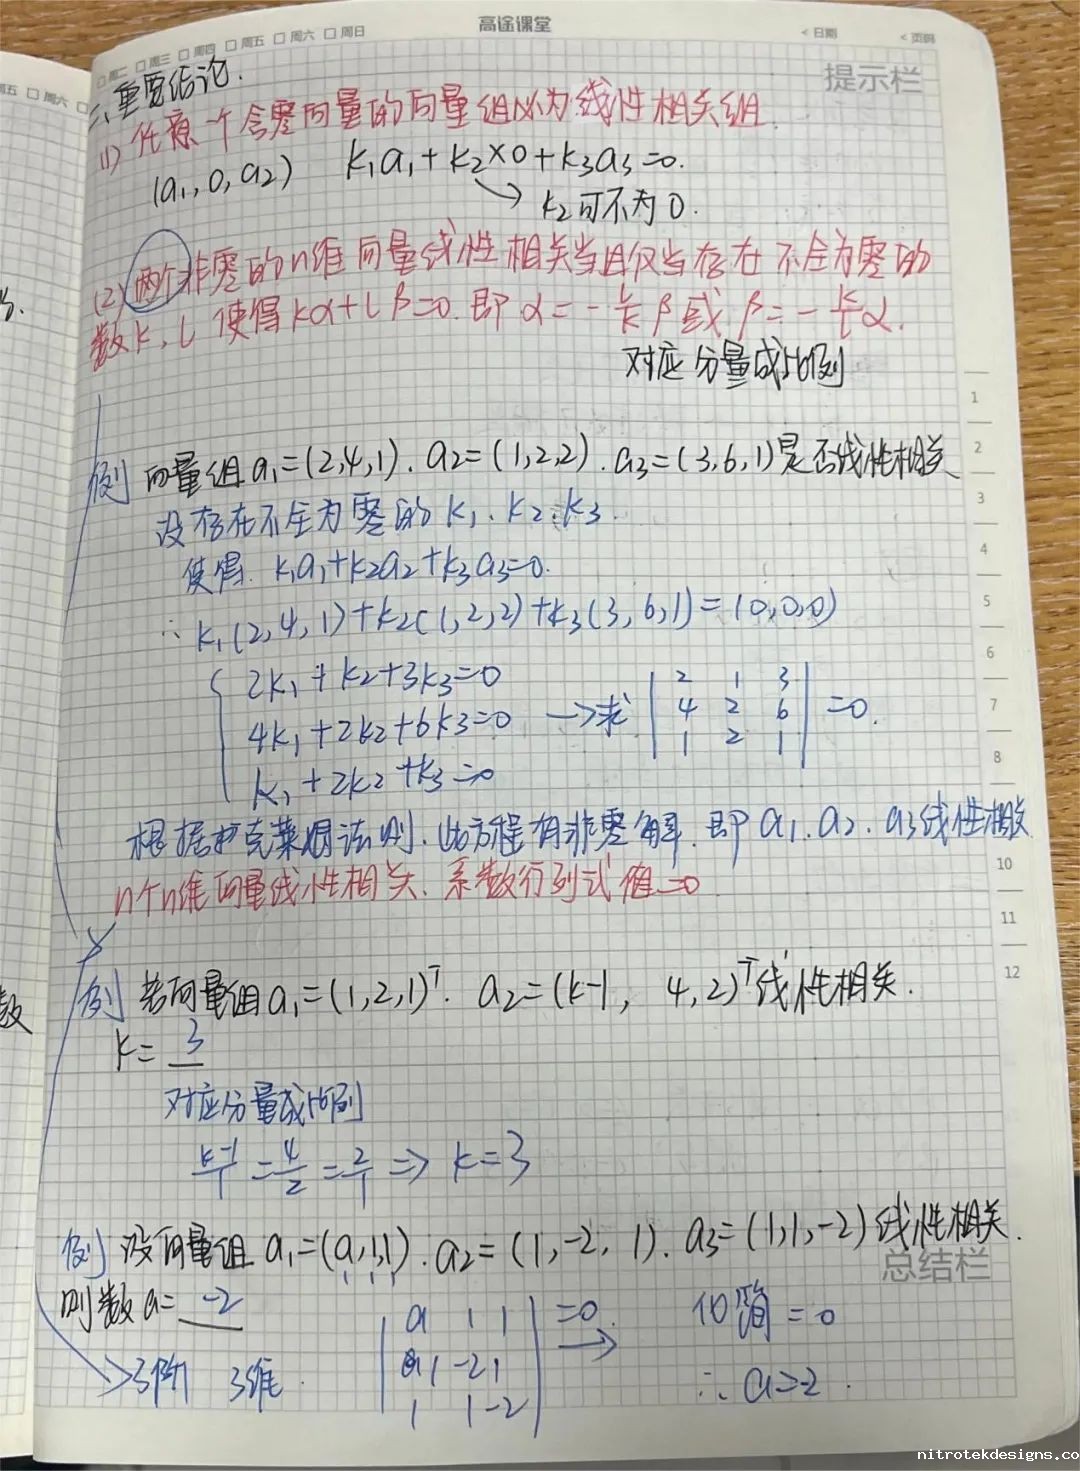 周二 □ 周三 □ 周四 □ 周五 □ 周六 □ 周日
高途课堂
< 日期 < 页码
五 □ 周六 □
提示栏
二、重要结论.
(1) 任意一个含零向量的向量组必为线性相关组.
(a₁, 0, a₂) k₁a₁+k₂×0+k₃a₃=0.
k₂可不为0.
(2) 两个非零的n维向量线性相关当且仅当存在不全为零的
数k, l 使得kα+lβ=0. 即 α=-l/k β 或 β=-k/l α.
对应分量成比例
例 向量组a₁=(2,4,1). a₂=(1,2,2). a₃=(3,6,1)是否线性相关
设存在不全为零的 k₁. k₂. k₃.
使得. k₁a₁+k₂a₂+k₃a₃=0.
∴ k₁(2,4,1)+k₂(1,2,2)+k₃(3,6,1)=(0,0,0)
2k₁+k₂+3k₃=0
4k₁+2k₂+6k₃=0 →求
k₁+2k₂+k₃=0
| 2 1 3 |
| 4 2 6 | =0.
| 1 2 1 |
根据克莱姆法则. 此方程有非零解. 即a₁. a₂. a₃线性相关.
n个n维向量线性相关、系数行列式值=0
数
例 若向量组a₁=(1,2,1)ᵀ. a₂=(k-1, 4,2)ᵀ线性相关.
k= 3
对应分量成比例
k-1/1=4/2=2/1 ⇒ k=3
例 设向量组 a₁=(a,1,1). a₂=(1,-2,1). a₃=(1,1,-2)线性相关.
总结栏
则数a= -2
| a 1 1 | =0. 化简=0
| 1 -2 1 | →
| 1 1 -2 | ∴ a=-2.
3阶 3维.
1
2
3
4
5
6
7
8
10
11
12
nitrotekdesigns.co